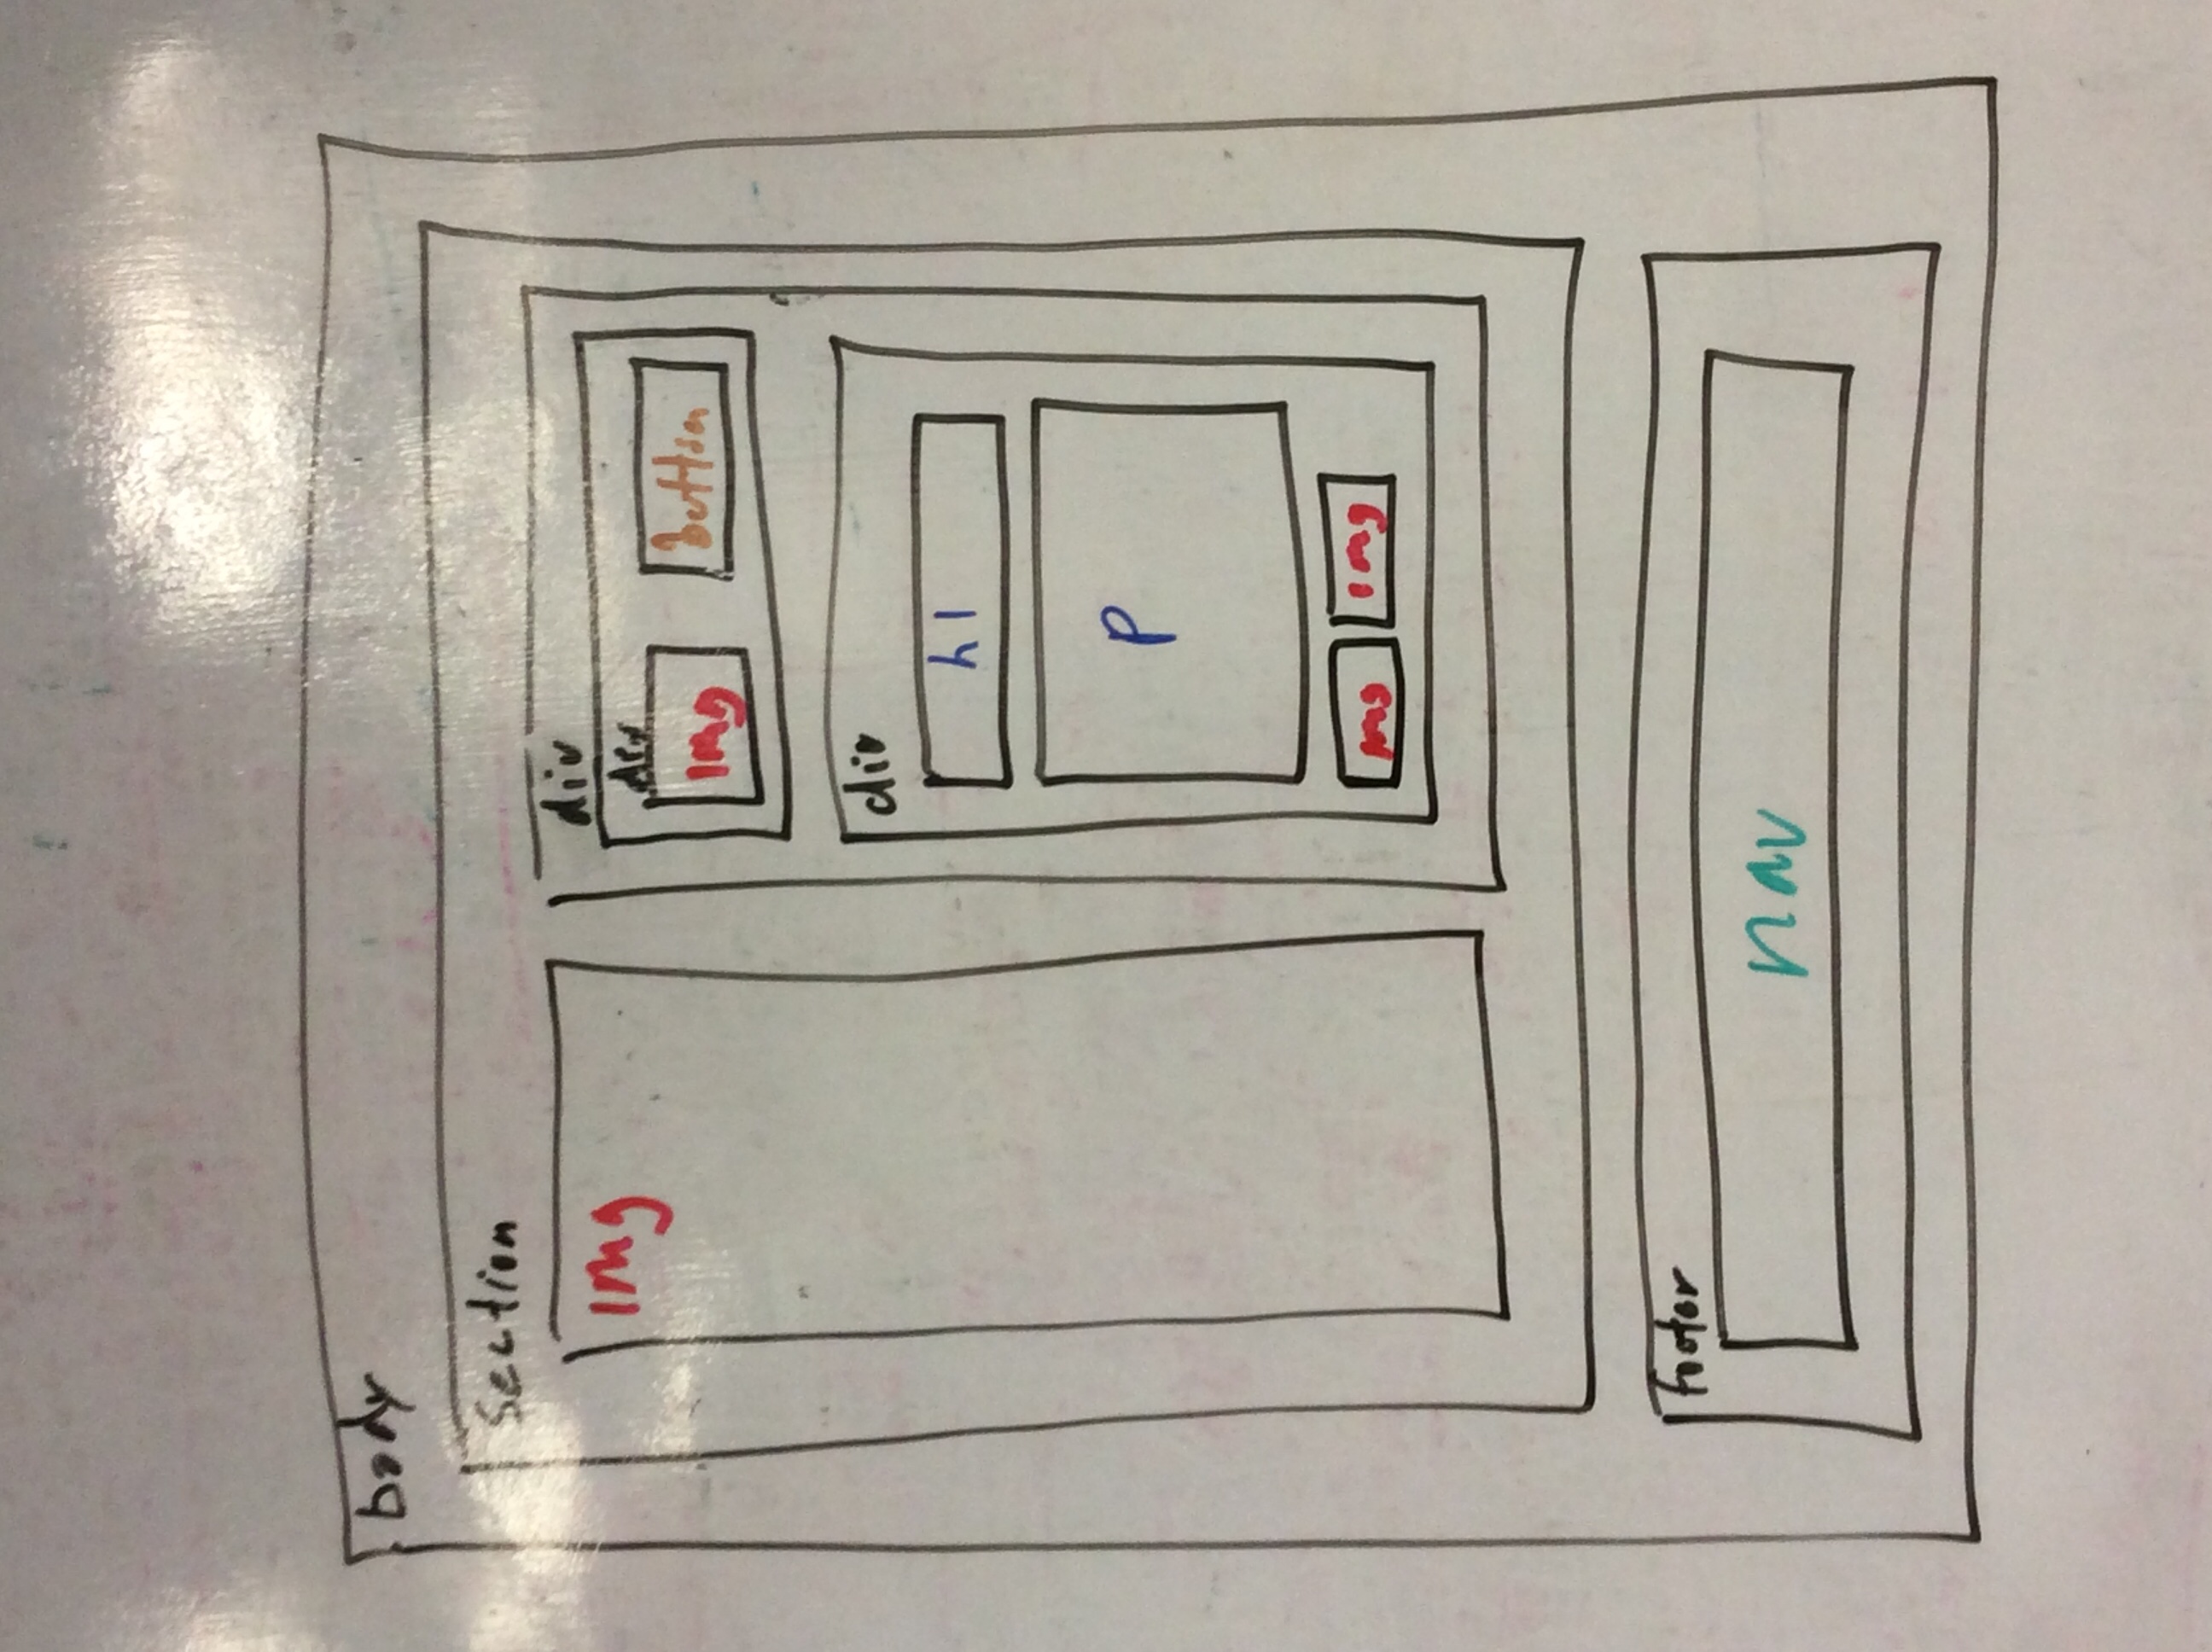 body
Section
img
div
div
img
button
div
h1
p
img
img
footer
nav